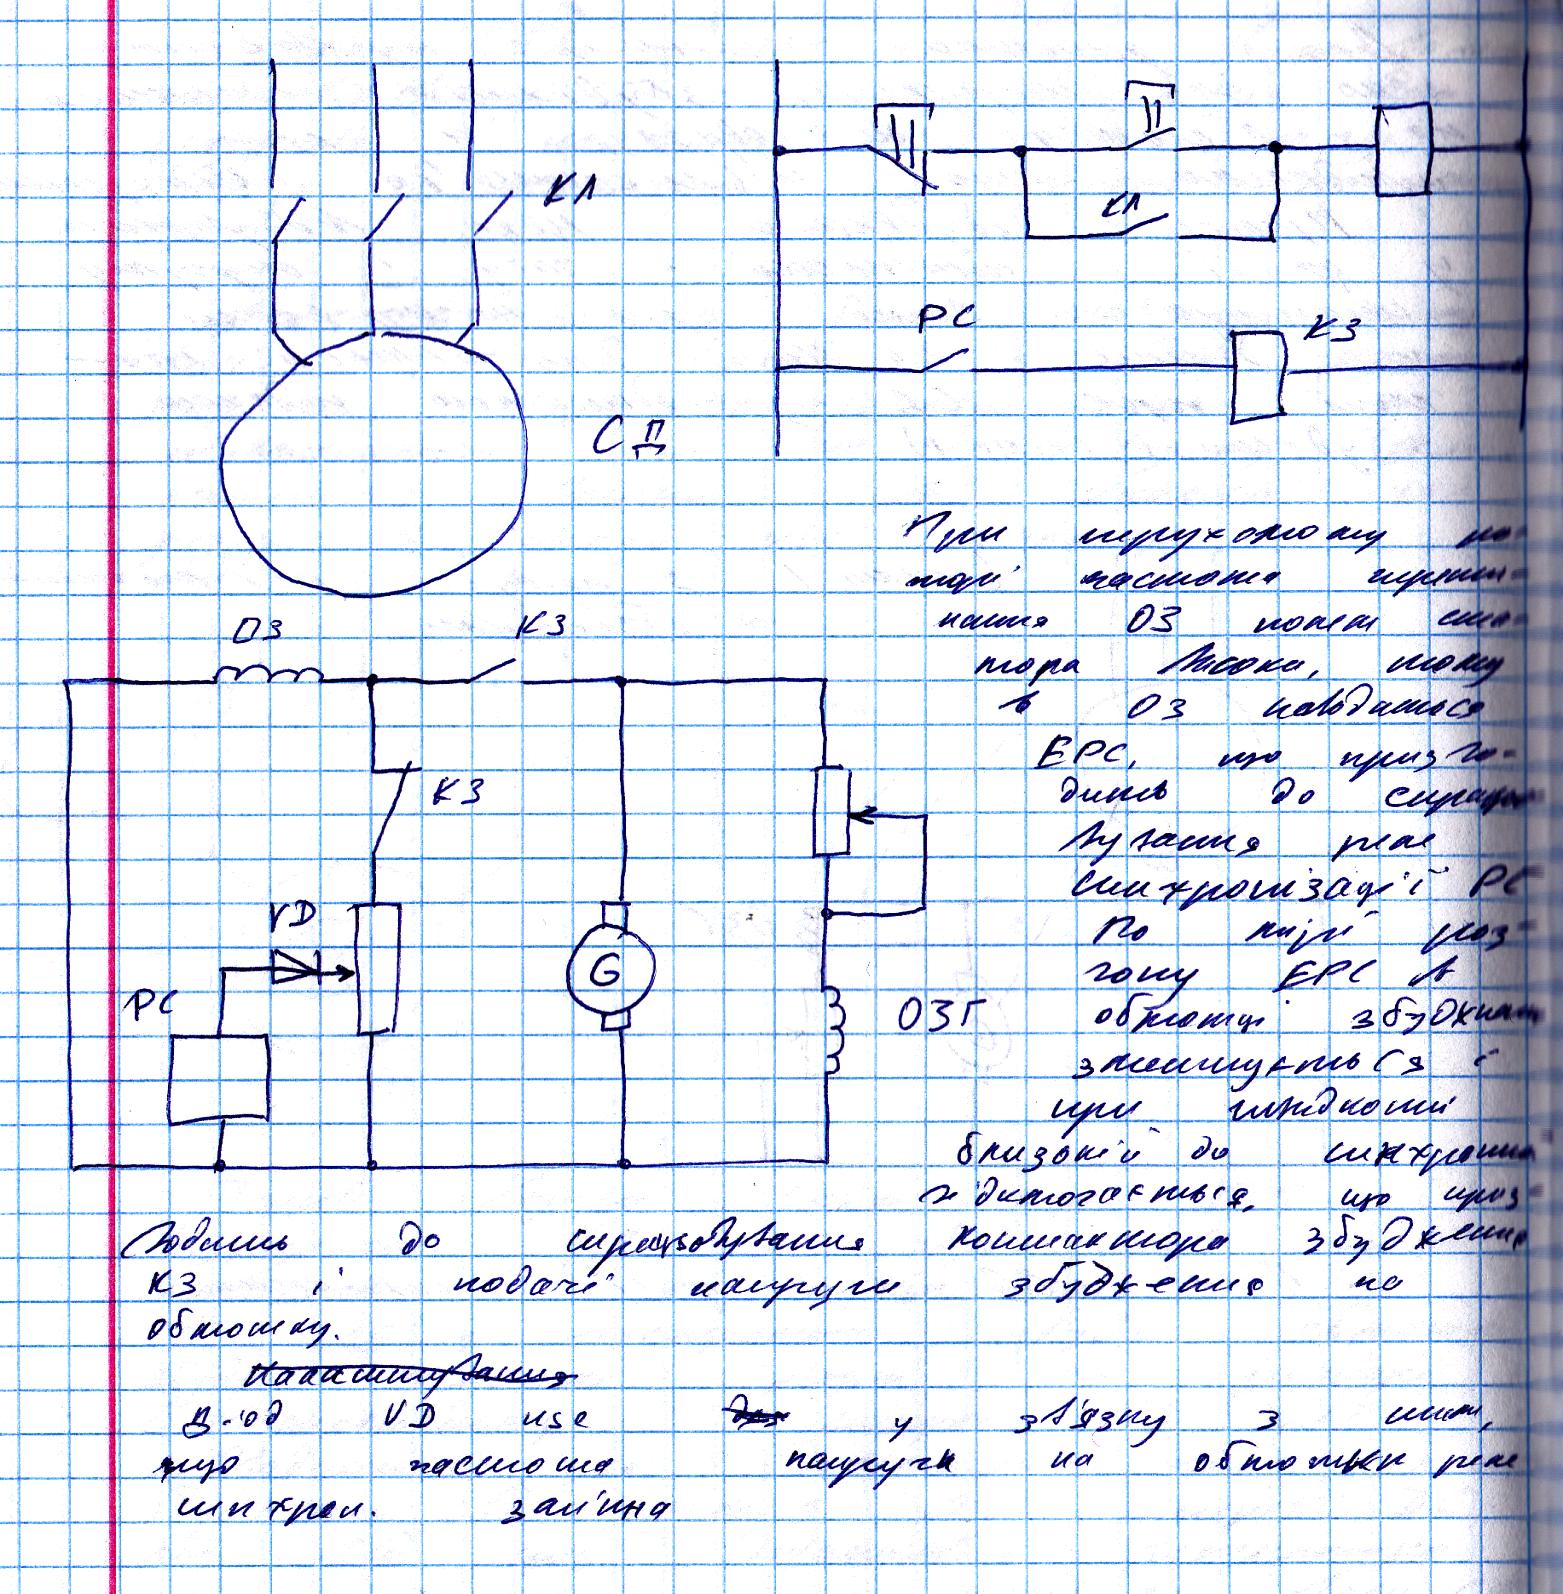 КЛ
КЛ
РС
КЗ
СД
ОЗ
КЗ
КЗ
VD
РС
G
ОЗГ
При нерухомому ро-
торі частота перети-
нання ОЗ полем ста-
тора висока, тому
в ОЗ наводиться
ЕРС, що призво-
дить до спрацю-
вування реле
синхронізації РС
По мірі роз-
гону ЕРС в
обмотці збудження
зменшується і
при швидкості
близькій до синхронна
відмогається, що приз-
водить до спрацьовування контактора збудження
КЗ і подачі напруги збудження на
обмотку.
Діод VD у зв'язку з тим,
що частота напруги на обмотки реле
синхрон. змінна